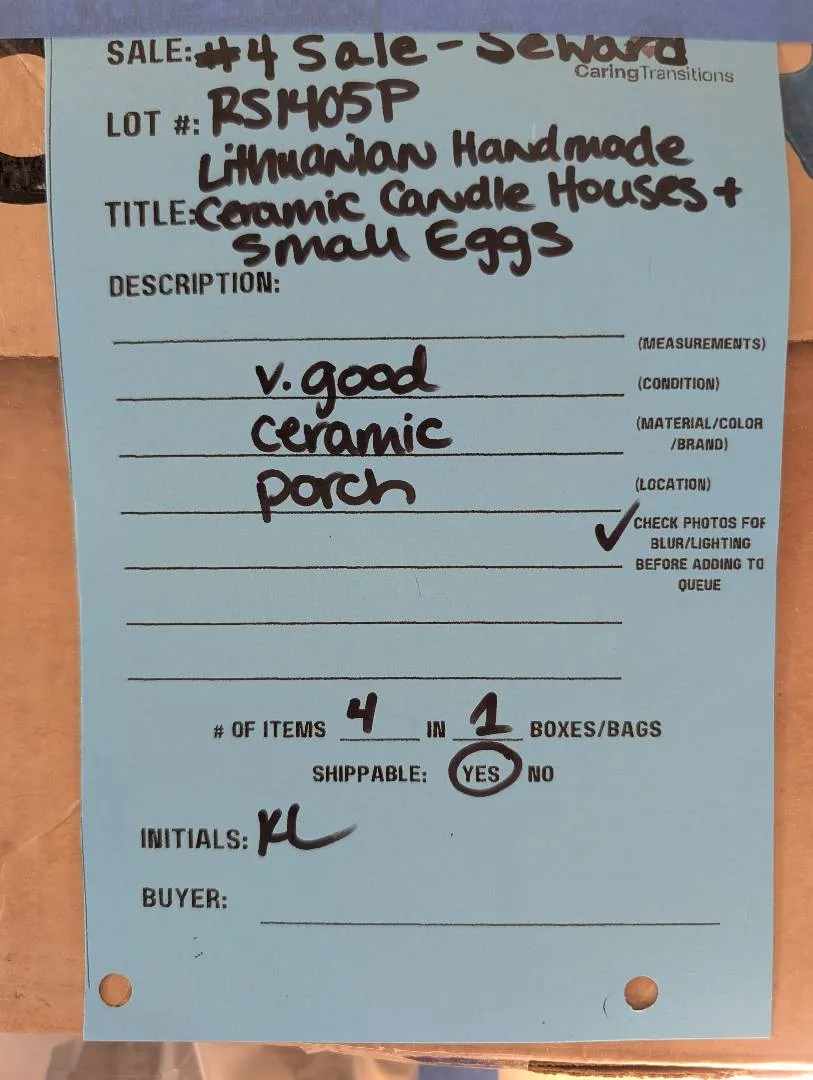 SALE: #4 Sale - Seward
CaringTransitions
LOT #: RS1405P
Lithuanian Handmade
TITLE: Ceramic Candle Houses +
Small Eggs
DESCRIPTION:
(MEASUREMENTS)
v. good (CONDITION)
ceramic (MATERIAL/COLOR
/BRAND)
porch (LOCATION)
✓ CHECK PHOTOS FOR
BLUR/LIGHTING
BEFORE ADDING TO
QUEUE
# OF ITEMS 4 IN 1 BOXES/BAGS
SHIPPABLE: YES NO
INITIALS: KL
BUYER: